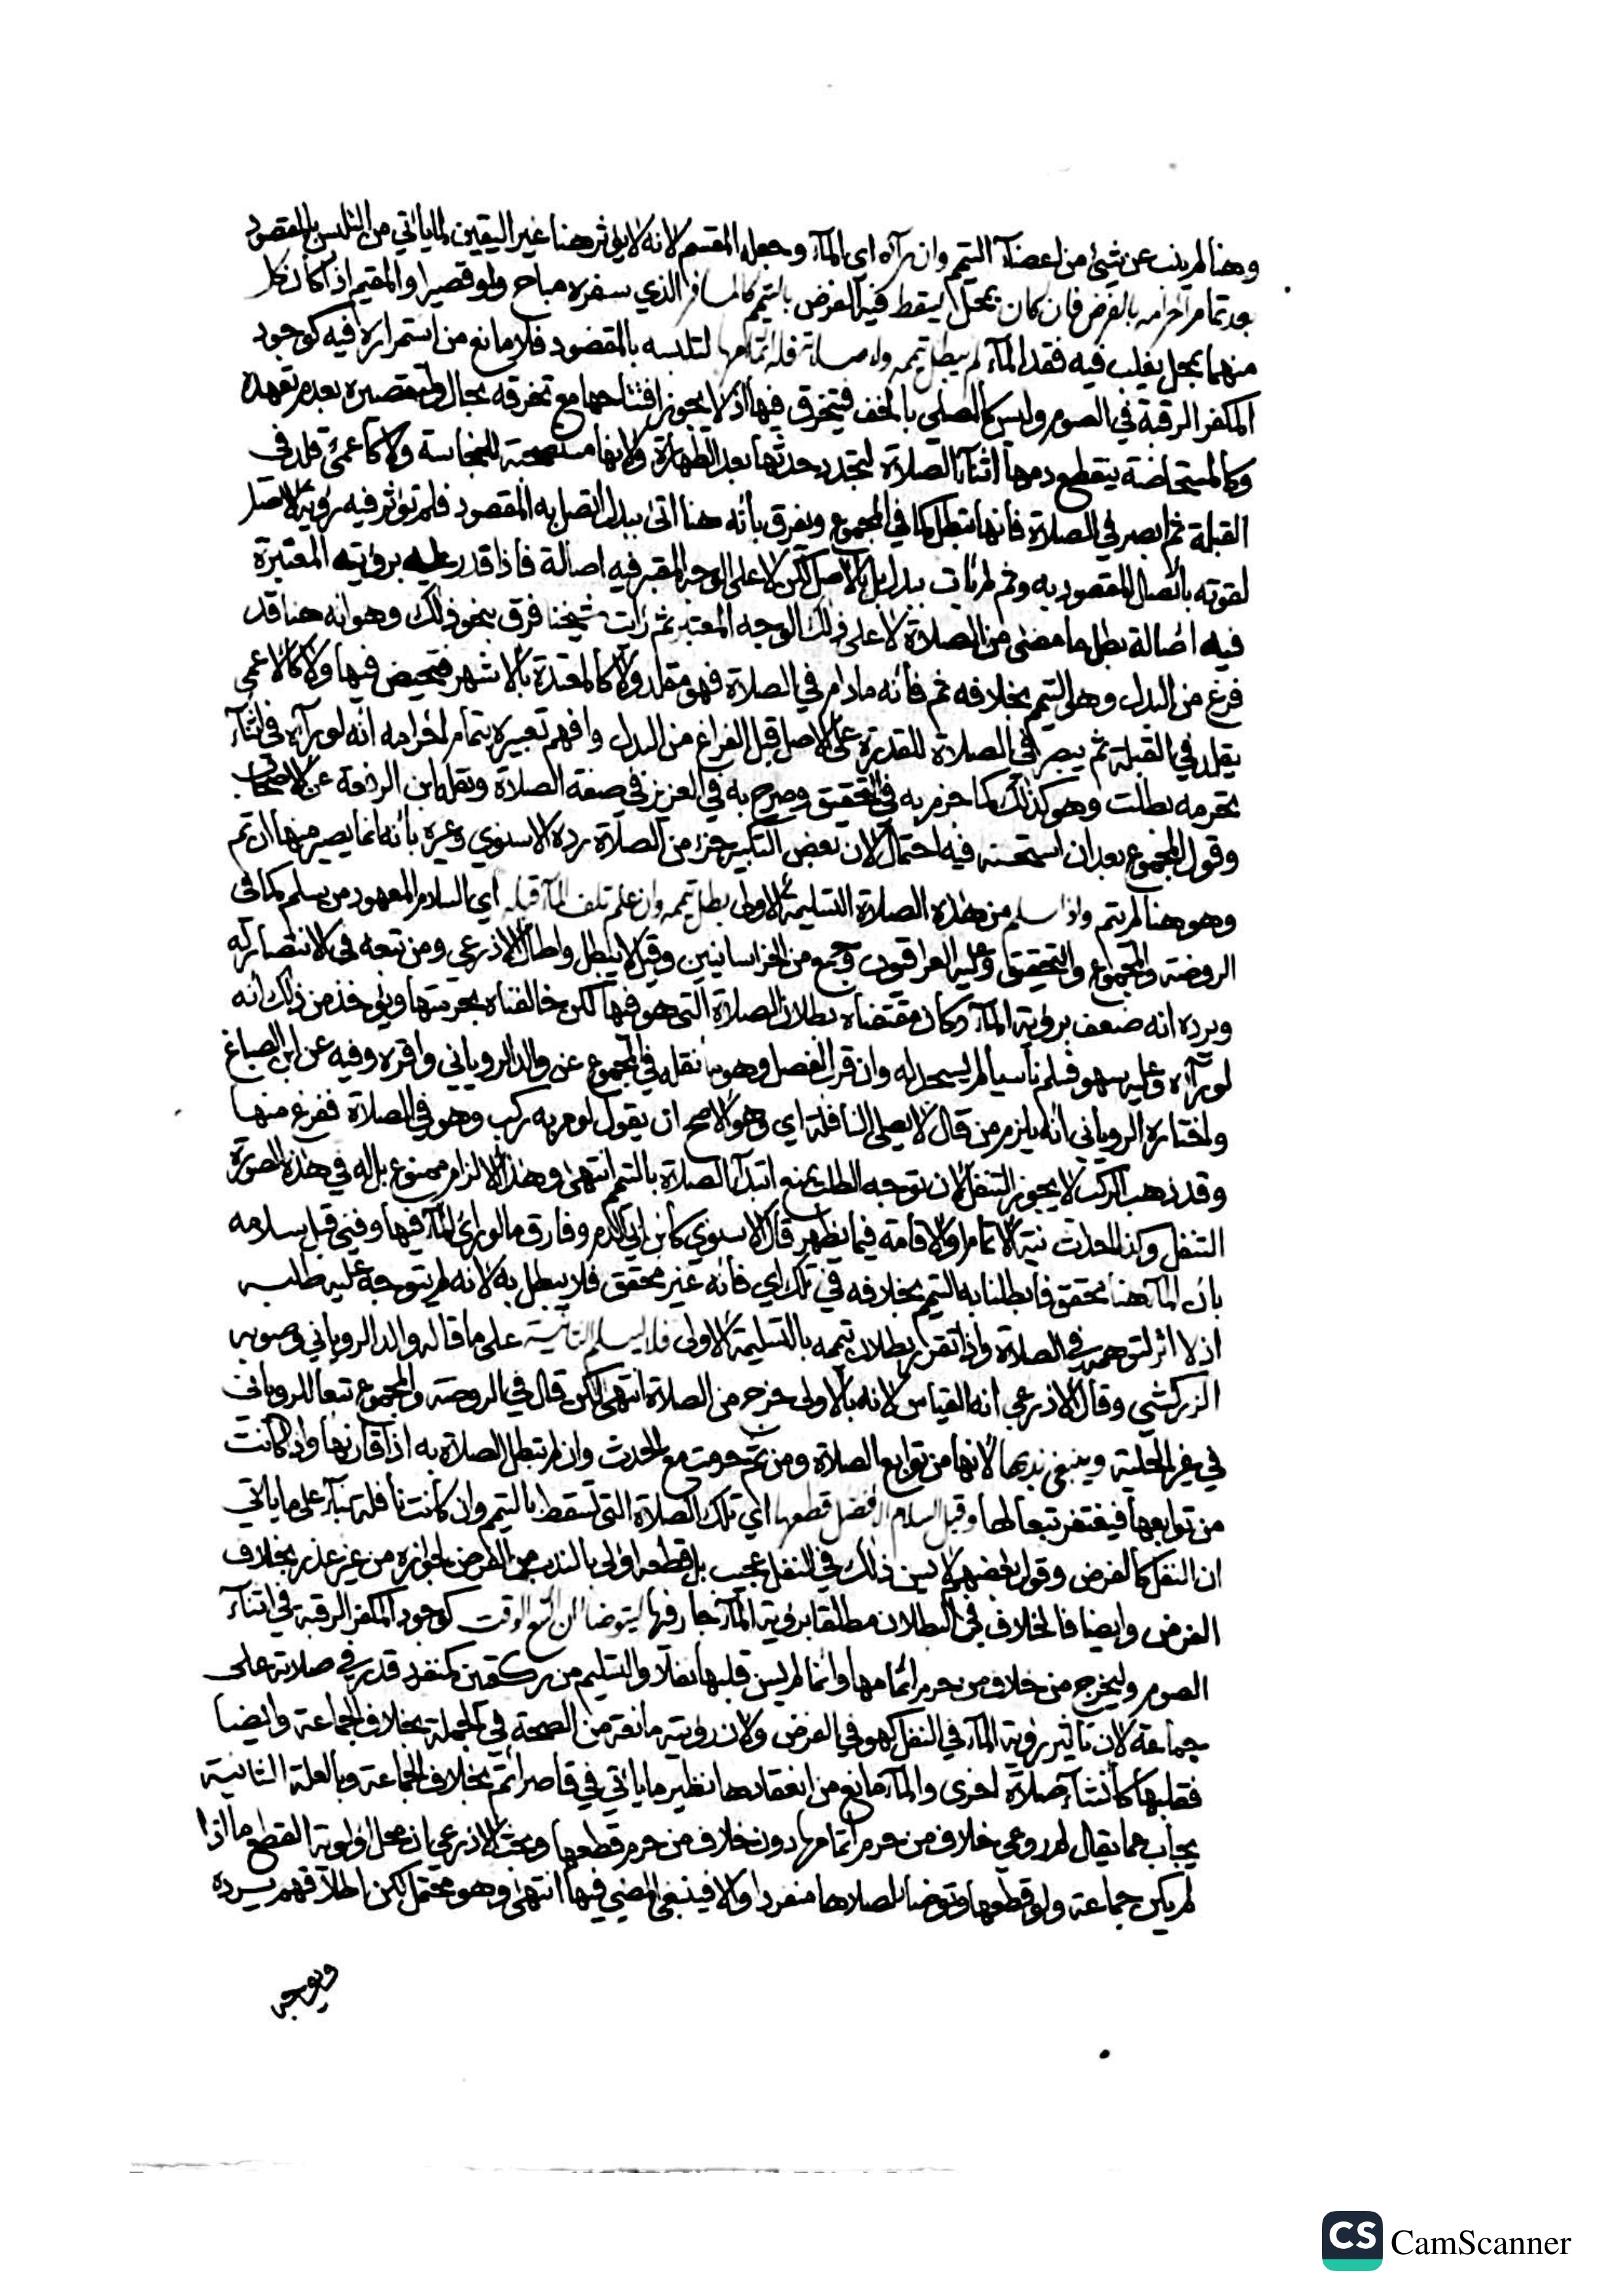 وهنا لم ينب عن شيئ من اعضآ التيمم وان رآه اى المآء وجعله المقسم لانه لا يؤثر هنا غير اليقين لما يأتي من التلبس بالمقصود
بعد تمام احرامه بالفرض فان كان بمحل يسقط فيه الفرض بالتيمم كالمسافر الذي سفره مباح ولو قصيرا والمقيم اذا كان كل
منهما بمحل يغلب فيه فقد المآء لم يبطل تيممه ولا صلاته فله اتمامها لتلبسه بالمقصود فلا مانع من استمراره فيه كوجود
المكفر الرقبة في الصوم وليس كالمصلي بالخف فيتخرق فيها اذ لا يجوز افتتاحها مع تخرقه بحال ولتقصيره بعدم تعهده
وكالمستحاضة ينقطع دمها اثنآء الصلاة لتجدد حدثها بعد الطهارة ولانها مستصحبة للنجاسة ولا كأعمى قلد في
القبلة ثم ابصر في الصلاة فانها تبطل كما في المجموع ويفرق بأنه هنا اتى ببدل اتصل به المقصود فلم تؤثر فيه رؤية الاصل
لقوته باتصال المقصود به وثم لم يأت ببدل بل بالاصل لكن لا على الوجه المعتبر فيه اصالة فاذا قدر عليه برؤيته المعتبرة
فيه اصالة بطل ما مضى من الصلاة لا على ذلك الوجه المعتبر ثم رأيت شيخنا فرق بنحو ذلك وهو انه هنا قد
فرغ من البدل وهو التيمم بخلافه ثم فأنه ما دام في الصلاة فهو مقلد ولا كالمعتدة بالاشهر فتحيض فيها ولا كالاعمى
يقلد في القبلة ثم يبصر في الصلاة للقدرة على الاصل قبل الفراغ من البدل وافهم تعبيره بتمام احرامه انه لو رآه في اثنآء
تحرمه بطلت وهو كذلك كما جزم به في التحقيق وصرح به في العزيز في صفة الصلاة ونقله ابن الرفعة عن الاصحاب
وقول المجموع بعد ان استحسنه فيه احتمال لان بعض التكبير جزء من الصلاة رده الاسنوي وغيره بأنه انما يصير منها ان تم
وهو هنا لم يتم واذا سلم من هذه الصلاة التسليمة الاولى بطل تيممه وان علم تلف المآء قبله اي السلام المعهود من يسلم كما في
الروضة والمجموع والتحقيق وعليه العراقيون وجمع من الخراسانيين وقيل لا يبطل واطال الاذرعي ومن تبعه في الانتصار له
ويرده انه ضعف برؤية المآء وكان مقتضاه بطلان الصلاة التي هو فيها لكن خالفناه بحرمتها ويؤخذ من ذلك انه
لو رآه وعليه سهو فسلم ناسيا لم يسجد له وان قرب الفصل وهو ما نقله في المجموع عن والد الروياني واقره وفيه عن ابن الصباغ
واختاره الروياني انه يلزم من قال لا يصلي النافلة اي وهو الاصح ان يقول لو مر به ركب وهو في الصلاة ففرغ منها
وقد ذهب الركب لا يجوز التنفل لان توجه الطلب يمنع ابتدآء الصلاة بالتيمم انتهى وهذا الالزام ممنوع بل له في هذه الصورة
التنفل وكذا لحدث نية الاتمام او الاقامة فيما يظهر قال الاسنوي كابن ابي الدم وفارق ما لو رأى المآء فيها وفني قبل سلامه
بان المآء هنا محقق فابطلنا به التيمم بخلافه في تلك اي فأنه غير محقق فلا يبطل به لانه لم يتوجه عليه طلبه
اذ لا اثر لتوهمه في الصلاة واذا تقرر بطلان تيممه بالتسليمة الاولى فلا يسلم الثانية على ما قاله والد الروياني وصوبه
الزركشي وقال الاذرعي انه القياس لانه بالاولى خرج من الصلاة انتهى لكن قال في الروضة والمجموع تبعا للروياني
في غير الحلية وينبغي ندبها لانها من توابع الصلاة ومن ثم حرمت مع الحدث وان لم تبطل الصلاة به اذا قارنها واذا كانت
من توابعها فيغتفر تبعا لها وقبل السلام الافضل قطعها اي تلك الصلاة التي تسقط بالتيمم وان كانت نافلة بنآء على ما يأتي
ان النفل كالفرض وقول بعضهم لا يسن ذلك في النفل عجيب بل قطعه اولى بالندب من الفرض لجوازه من غير عذر بخلاف
الفرض وايضا فالخلاف في البطلان مطلقا برؤية المآء جار فيها ليتوضأ ان اتسع الوقت كوجود المكفر الرقبة في اثنآء
الصوم وليخرج من خلاف من حرم اتمامها وانما لم يسن قلبها نفلا والتسليم من ركعتين كمنفرد قدر في صلاته على
جماعة لان تأثير رؤية المآء في النفل كهو في الفرض ولان رؤيته مانعة من الصحة في الجملة بخلاف الجماعة وايضا
فقلبها كأنشآء صلاة اخرى والمآء مانع من انعقادها نظير ما يأتي في قاصر أتم بخلاف الجماعة وبالعلة الثانية
يجاب عما يقال لم روعي خلاف من حرم اتمامها دون خلاف من حرم قطعها وبحث الاذرعي ان محل اولوية القطع ما اذا
لم يكن جماعة ولو قطعها وتوضأ لصلاها منفردا والا فينبغي المضي فيها انتهى وهو محتمل لكن اطلاقهم يرده
ويوجه
CS CamScanner